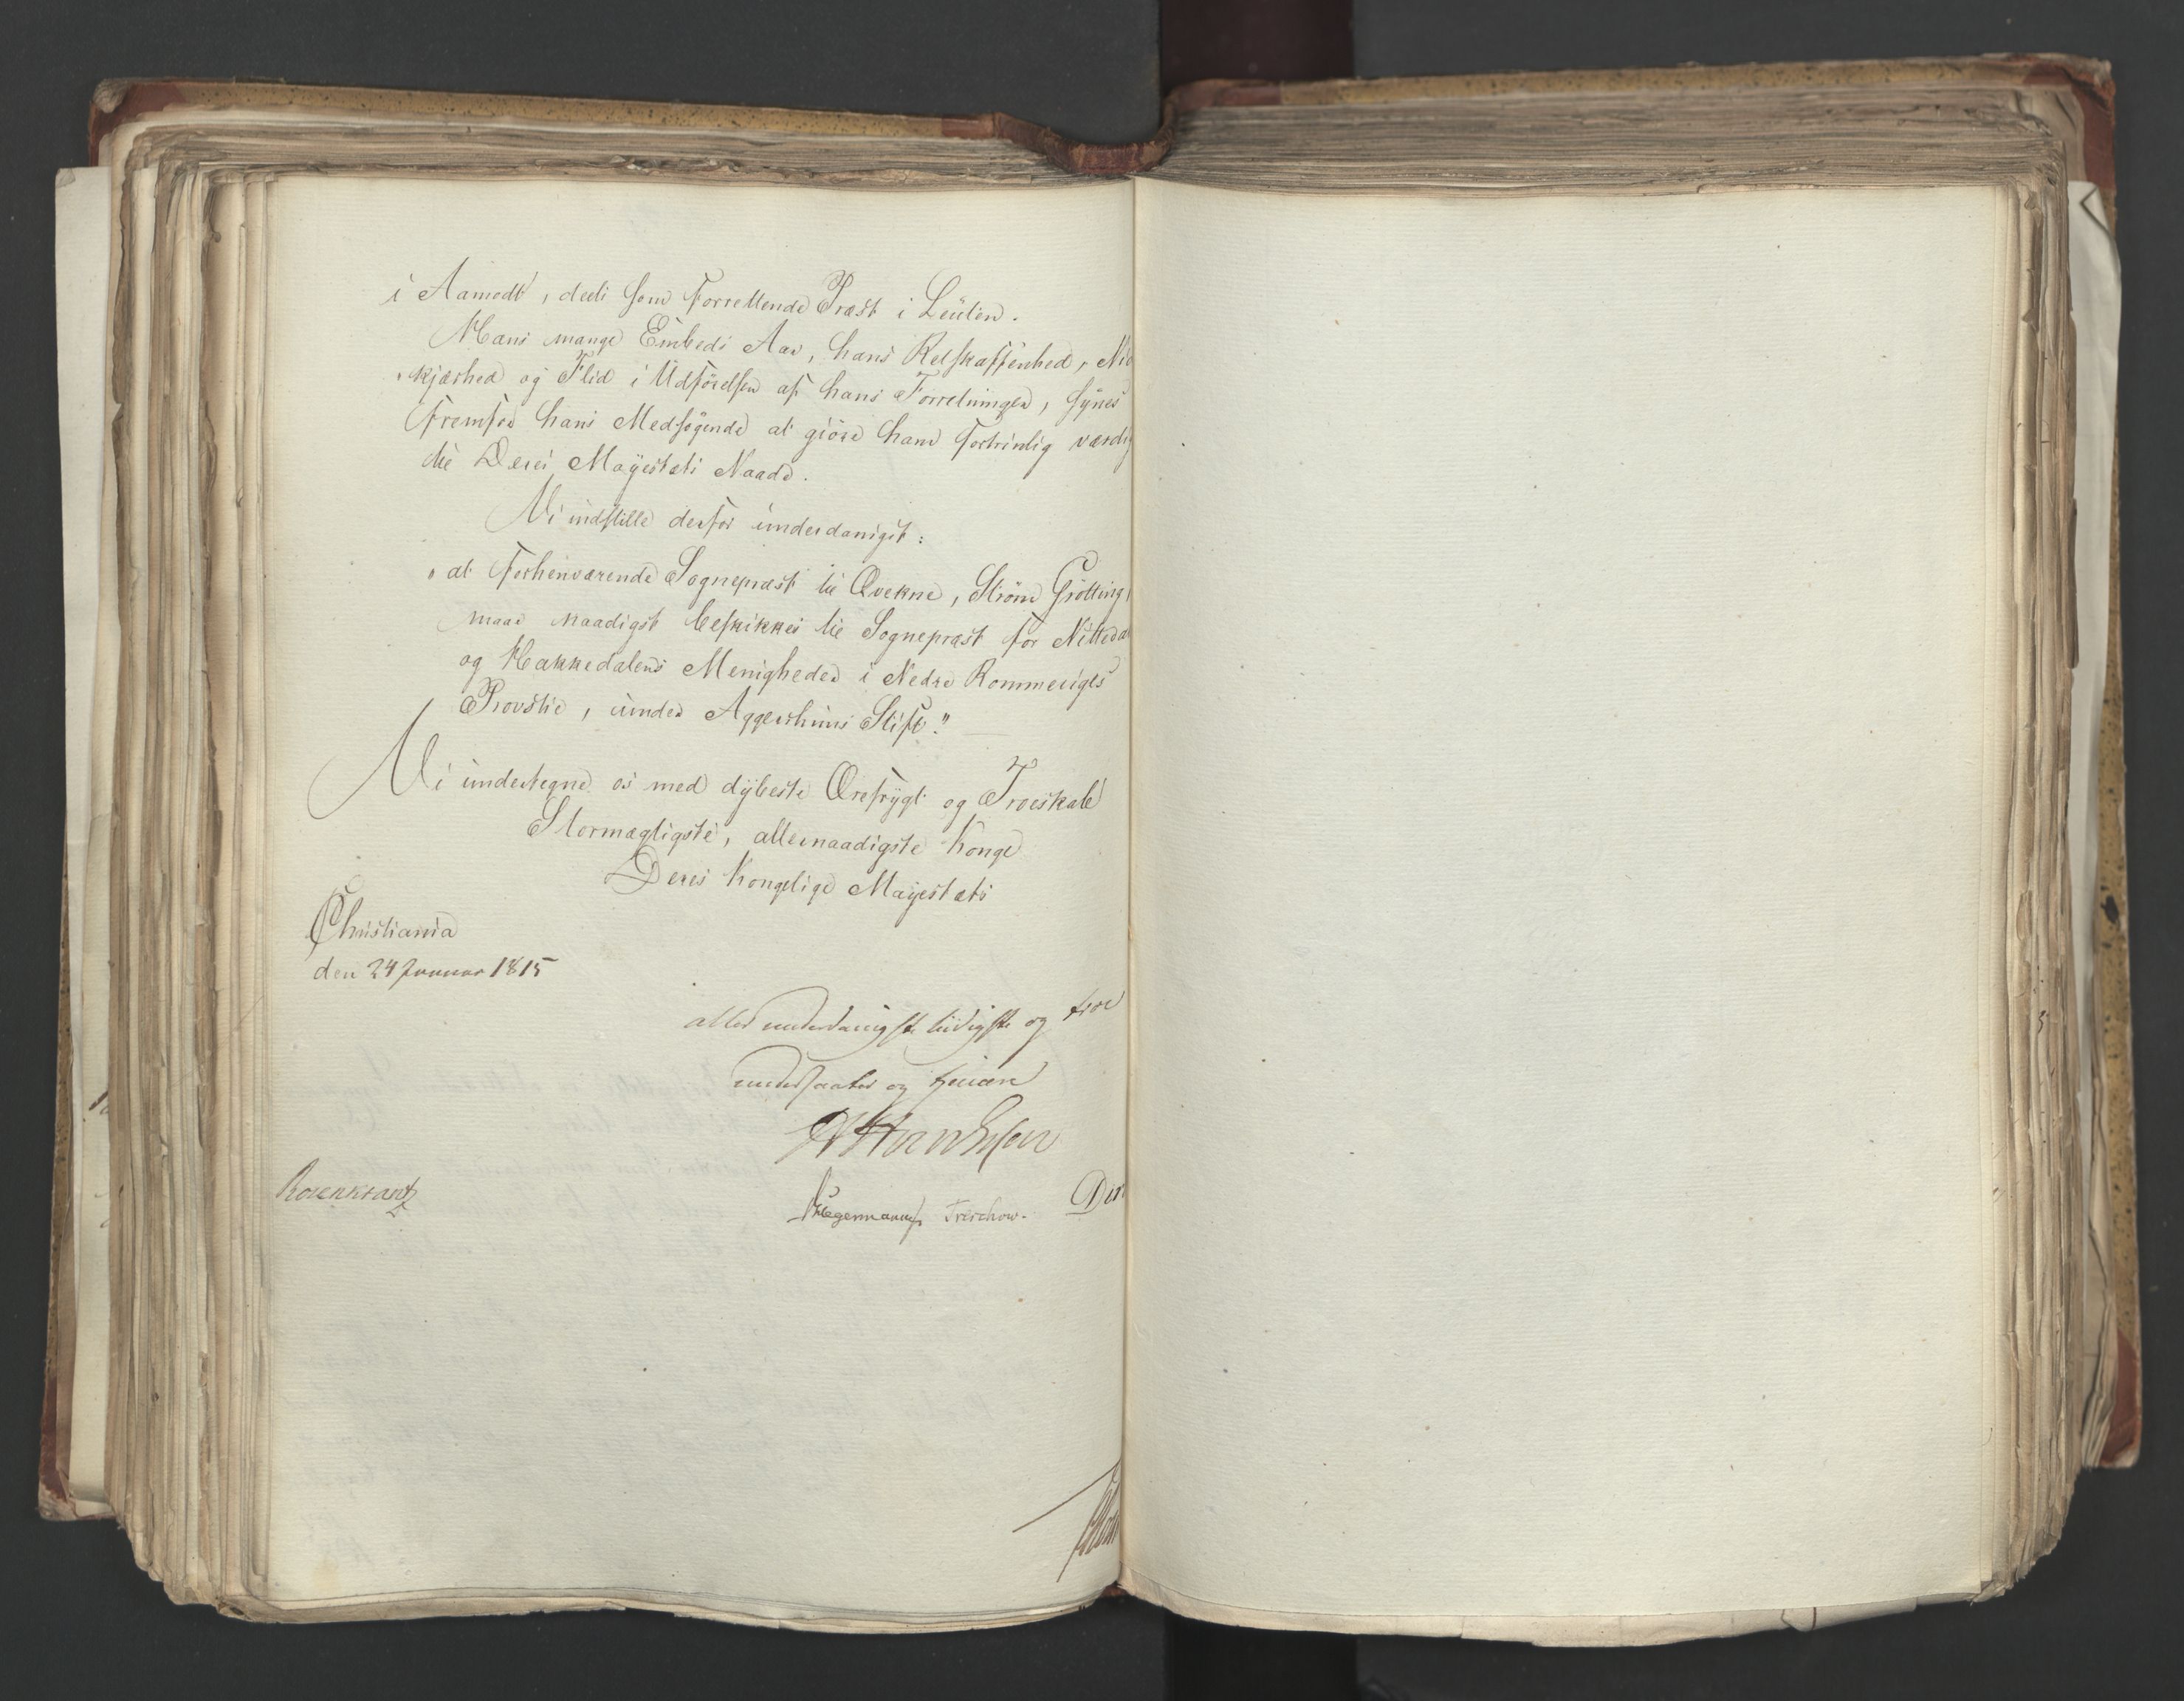 i Aamodt, deels som Forrettende Præst i Leüten.
Hans mange Embeds Aar, hans Retskaffenhed, Nid
kjærhed og Flid i Udförelsen af hans Forretninger, synes
fremfor hans Medsøgende at giöre ham fortrinlig værdig
til Deres Majestæts Naade.
Vi indstille derfor ünderdanigst:
"at forhenværende Sognepræst til Qvekne, Ström Grötting,
maae naadigst beskikkes til Sognepræst for Nittedal
og Hakkedalens Menigheder i Nedre Rommeriges
Provstie, ünder Aggershüüs Stift." —
Vi ündertegne os med dÿbeste Ærefrÿgt og Troeskab
Stormægtigste, allernaadigste Konge
Deres Kongelige Majestæts
Christiania
den 24 Januar 1815
allerunderdanigste lÿdigste og troe
undersaatter og tienere
Rosenkrantz
Hegermann Treschow.